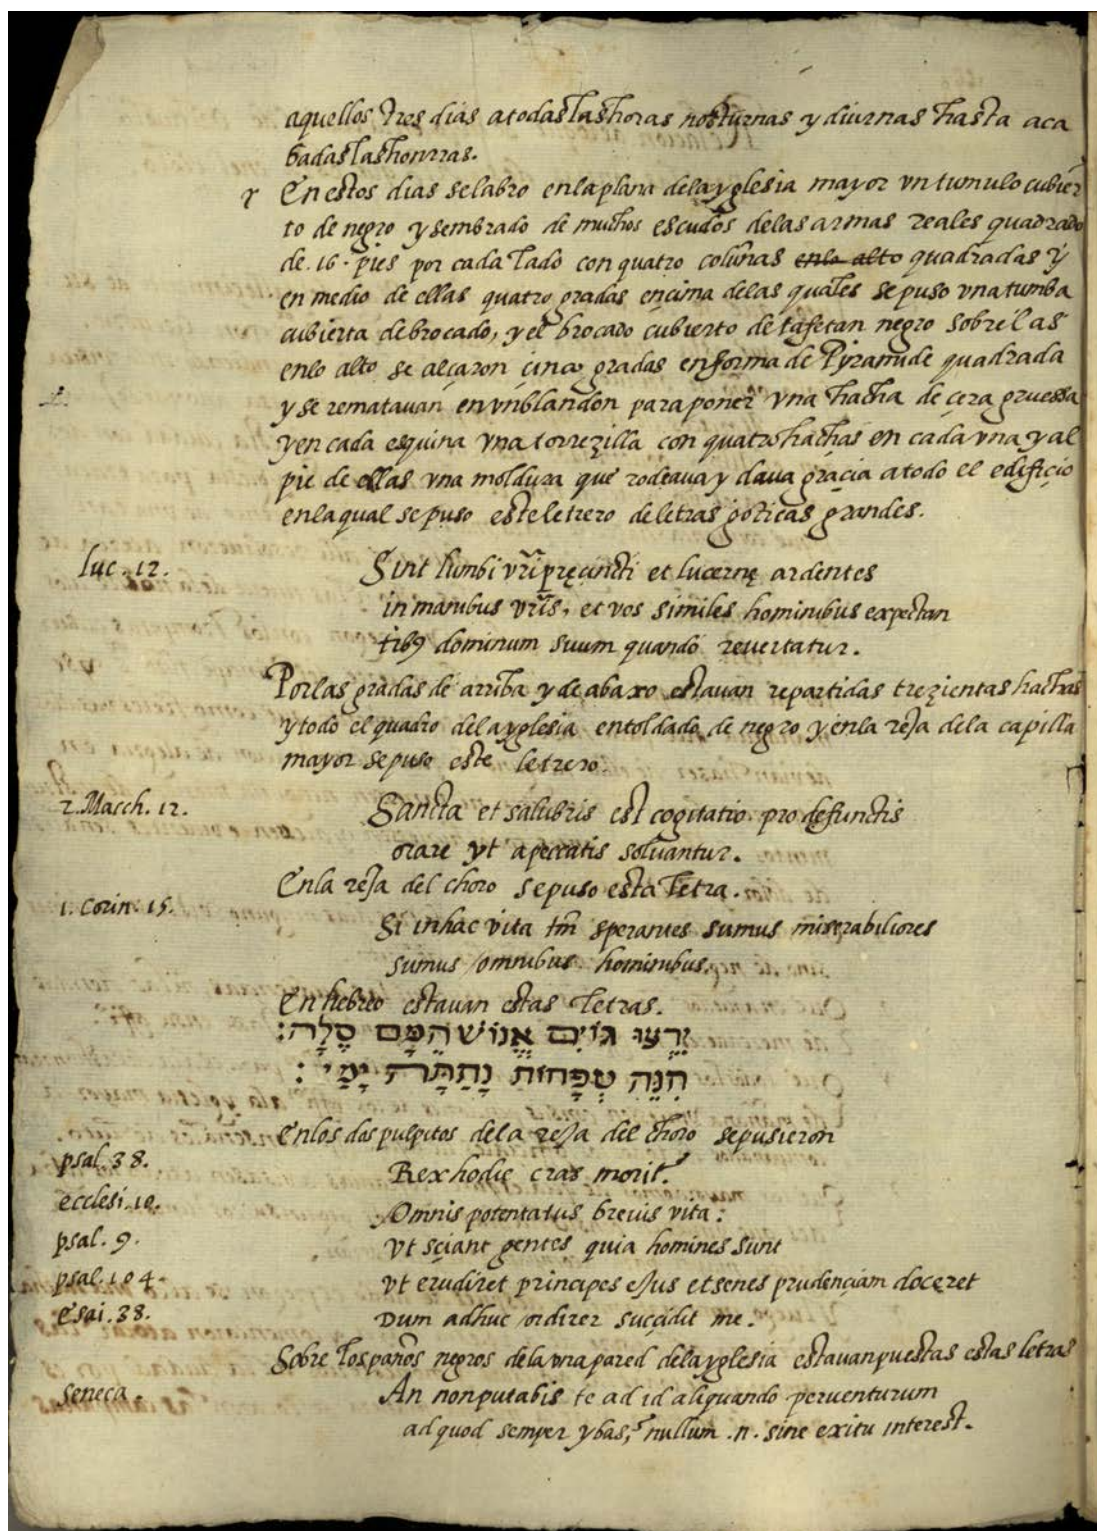 aquellos tres dias a todas las horas nocturnas y diurnas hasta aca
badas las honrras.
Y En estos dias se labro en la plana de la yglesia mayor vn tumulo cubier
to de negro y sembrado de muchos escudos de las armas reales quadrado
de .16. pies por cada lado con quatro colunas en lo alto quadradas y
en medio de ellas quatro gradas encima de las quales se puso vna tumba
cubierta de brocado, y el brocado cubierto de tafetan negro sobre las
en lo alto se alçaron çinco gradas en forma de Pyramide quadrada
y se rematauan en vn blandon para poner vna hacha de çera gruessa
y en cada esquina vna torrezilla con quatro hachas en cada vna y al
pie de ellas vna moldura que rodeaua y daua graçia a todo el edifiçio
en la qual se puso este letrero de letras goticas grandes.
luc. 12. Sint lumbi vr̃i pręcincti et lucernę ardentes
in manibus vr̃is, et vos similes hominibus expectan
tibꝰ dominum suum quando reuertatur.
Por las gradas de arriba y de abaxo estauan repartidas trezientas hachas
y todo el quadro de la yglesia entoldado de negro y en la reja de la capilla
mayor se puso este letrero.
2. Macch. 12. Sancta et salubris est cogitatio pro defunctis
orare vt a peccatis soluantur.
En la reja del choro se puso esta letra.
1. Corin. 15. Si in hac vita tm̃ sperantes sumus miserabiliores
sumus omnibus hominibus.
En hebreo estauan estas letras.
יֵרְעוּ גוֹיִם אֱנוֹשׁ הֵמָּם סֶלָה:
הִנֵּה טְפָחוֹת נָתַתָּה יָמַי :
En los dos pulpitos de la reja del choro se pusieron
psal. 38. Rex hodie cras morit᷑.
ecclesi. 10. Omnis potentatus breuis vita:
psal. 9. vt sçiant gentes quia homines sunt
psal. 104. vt erudiret principes ejus et senes prudençiam doceret
Esai. 38. Dum adhuc ordirer sucçidit me.
Sobre los paños negros de la vna pared de la yglesia estauan puestas estas letras
seneca. An non putabis te ad id aliquando peruenturum
ad quod semper ybas,? nullum .n. sine exitu interest.